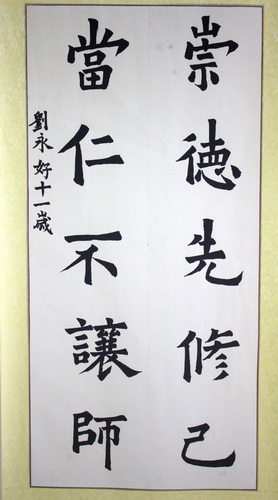 崇德先修己
當仁不讓師
劉永好十一歲